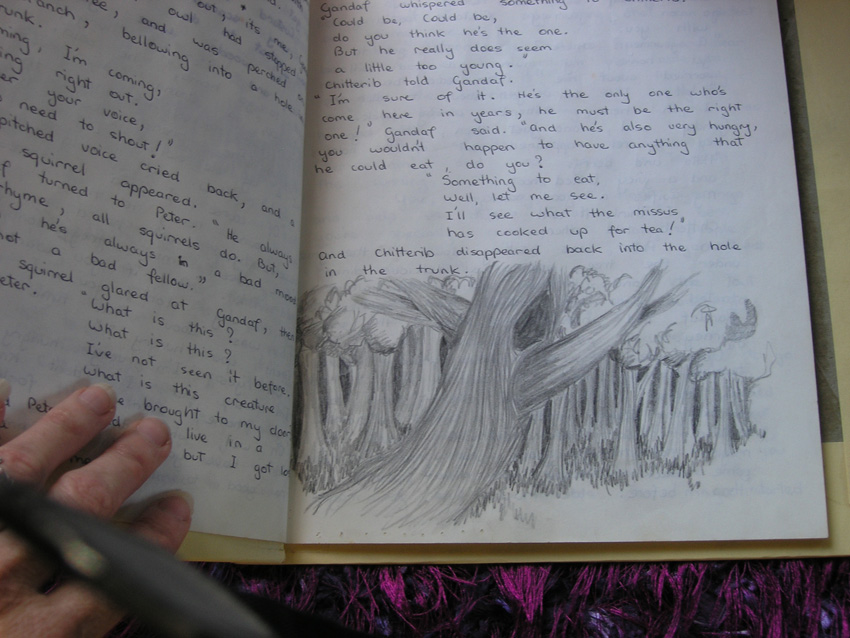 ranch,
and was perched a
bellowing into a hole
trunk.
I'm coming,
right out.
your voice,
need to shout!"
pitched voice cried back, and a
squirrel appeared. "He always
turned to Peter.
rhyme, all squirrels do. But,
he's always in a bad mood
not a bad fellow."
squirrel glared at Gandaf, then
Peter.
"What is this?
What is this?
I've not seen it before.
What is this creature
brought to my door
live in a
but I got lo
Gandaf whispered something to
"Could be, Could be,
do you think he's the one.
But he really does seem
a little too young."
Chitterib told Gandaf.
"I'm sure of it. He's the only one who's
come here in years, he must be the right
one!" Gandaf said. "and he's also very hungry,
you wouldn't happen to have anything that
he could eat, do you?
"Something to eat,
Well, let me see.
I'll see what the missus
has cooked up for tea!"
and Chitterib disappeared back into the hole
in the trunk.